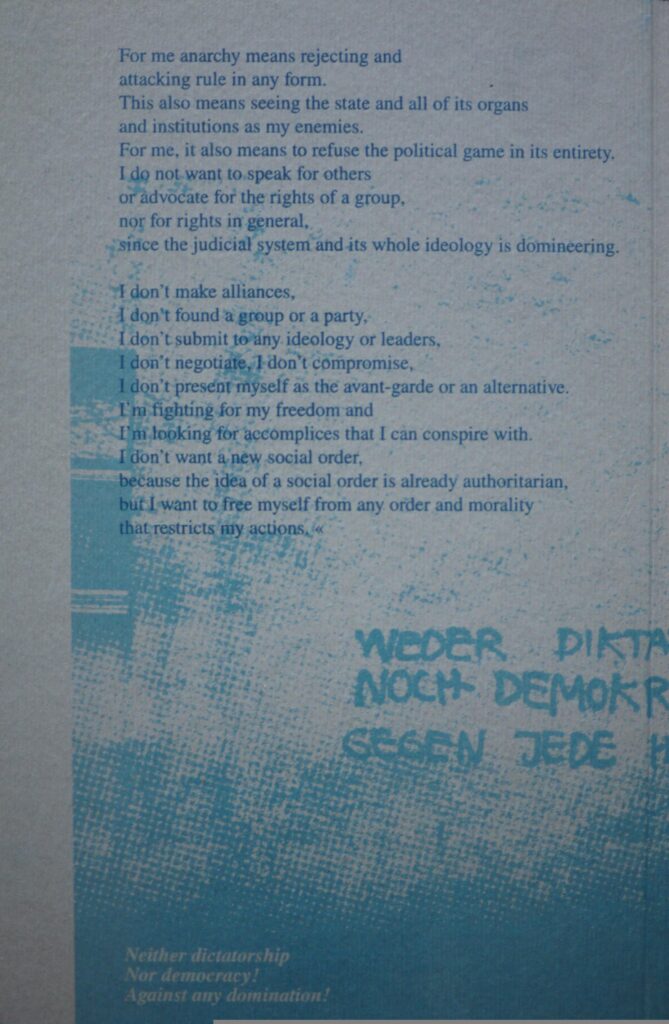 For me anarchy means rejecting and
attacking rule in any form.
This also means seeing the state and all of its organs
and institutions as my enemies.
For me, it also means to refuse the political game in its entirety.
I do not want to speak for others
or advocate for the rights of a group,
nor for rights in general,
since the judicial system and its whole ideology is domineering.
I don't make alliances,
I don't found a group or a party,
I don't submit to any ideology or leaders,
I don't negotiate, I don't compromise,
I don't present myself as the avant-garde or an alternative.
I'm fighting for my freedom and
I'm looking for accomplices that I can conspire with.
I don't want a new social order,
because the idea of a social order is already authoritarian,
but I want to free myself from any order and morality
that restricts my actions. «
WEDER DIKTA
NOCH DEMOKR
GEGEN JEDE H
Neither dictatorship
Nor democracy!
Against any domination!